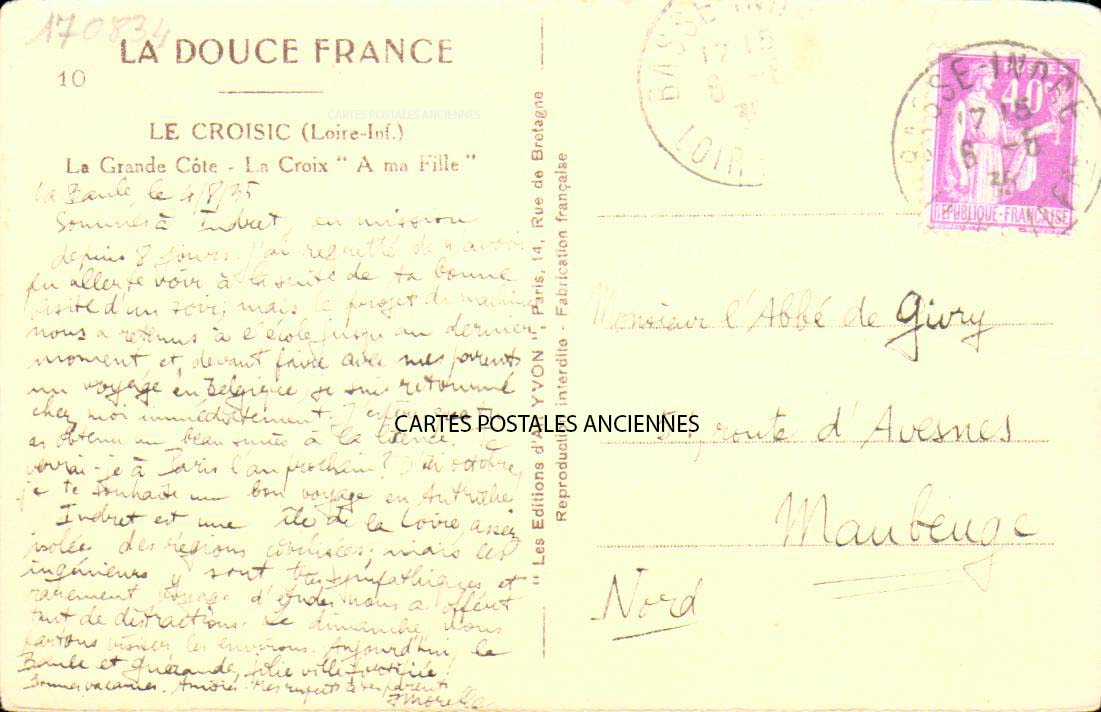 170834
LA DOUCE FRANCE
10
CARTES POSTALES ANCIENNES
LE CROISIC (Loire-Inf.)
La Grande Côte - La Croix " A ma Fille "
La Baule, le 4/8/35
Sommes à Indret, en mission
depuis 8 jours. J'ai regretté de n'avoir
pu aller te voir à la suite de ta bonne
visite d'un soir; mais le projet de machines
nous a retenus à l'école jusqu'au dernier
moment, et, devant faire avec mes parents
un voyage en Belgique, je suis retourné
chez moi immédiatement. J'espère que tu
as obtenu un beau succès à la licence. Te
verrai-je à Paris l'an prochain? D'ici octobre,
je te souhaite un bon voyage en Autriche.
Indret est une île de la Loire assez
isolée des régions civilisées; mais les
ingénieurs y sont très sympathiques et
rarement voyage d'études nous a offert
tant de distractions. Le dimanche nous
partons visiter les environs. Aujourd'hui, la
Baule et Guérande, jolie ville fortifiée!
Bonnes vacances. Amitiés. Mes respects à tes parents
" Les Editions d'Art YVON ", Paris, 14, Rue de Bretagne
Reproduction interdite - Fabrication française
CARTES POSTALES ANCIENNES
BASSE-INDRE
17 15
6 -
LOIRE
BASSE-INDRE
17 15
6 -
35
POSTES
40c
REPUBLIQUE-FRANÇAISE
Monsieur l'Abbé de Givry
51, route d'Avesnes
Maubeuge
Nord